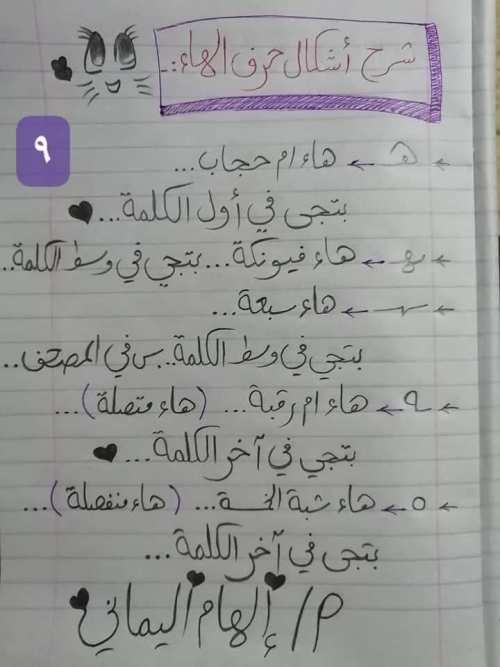 شرح أشكال حرف الهاء:-
٩
← هـ ← هاء ام حجاب...
بتجى في أول الكلمة...
← ـهـ ← هاء فيونكة... بتجي في وسط الكلمة..
← ـهـ ← هاء سبعة...
بتجي في وسط الكلمة.. بس في المصحف..
← ـه ← هاء ام رقبة... (هاء متصلة)...
بتجي في آخر الكلمة...
← ه ← هاء شبة الخمسة... (هاء منفصلة)...
بتجى في آخر الكلمة...
م/ إلهام اليماني